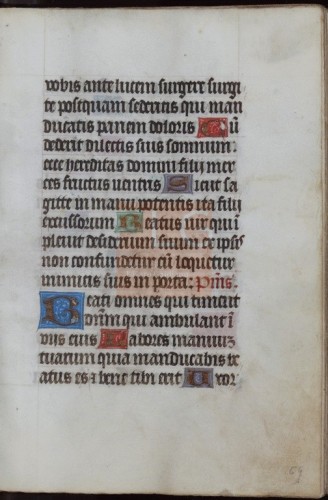 vobis ante lucem surgere surgi
te postquam sederitis qui man
ducatis panem doloris Cū
dederit dilectis suis somnum:
ecce hereditas domini filij mer
ces fructus ventris Sicut sa
gitte in manu potentis ita filij
excussorum Beatus vir qui
plevit desiderium suum ex ipsis
non confundetur cū loquetur
inimicis suis in porta: Psms.
Beati omnes qui timent
dominū qui ambulant ī
viis eius Labores manuuz
tuarum quia manducabis be
atus es et bene tibi erit Uxor